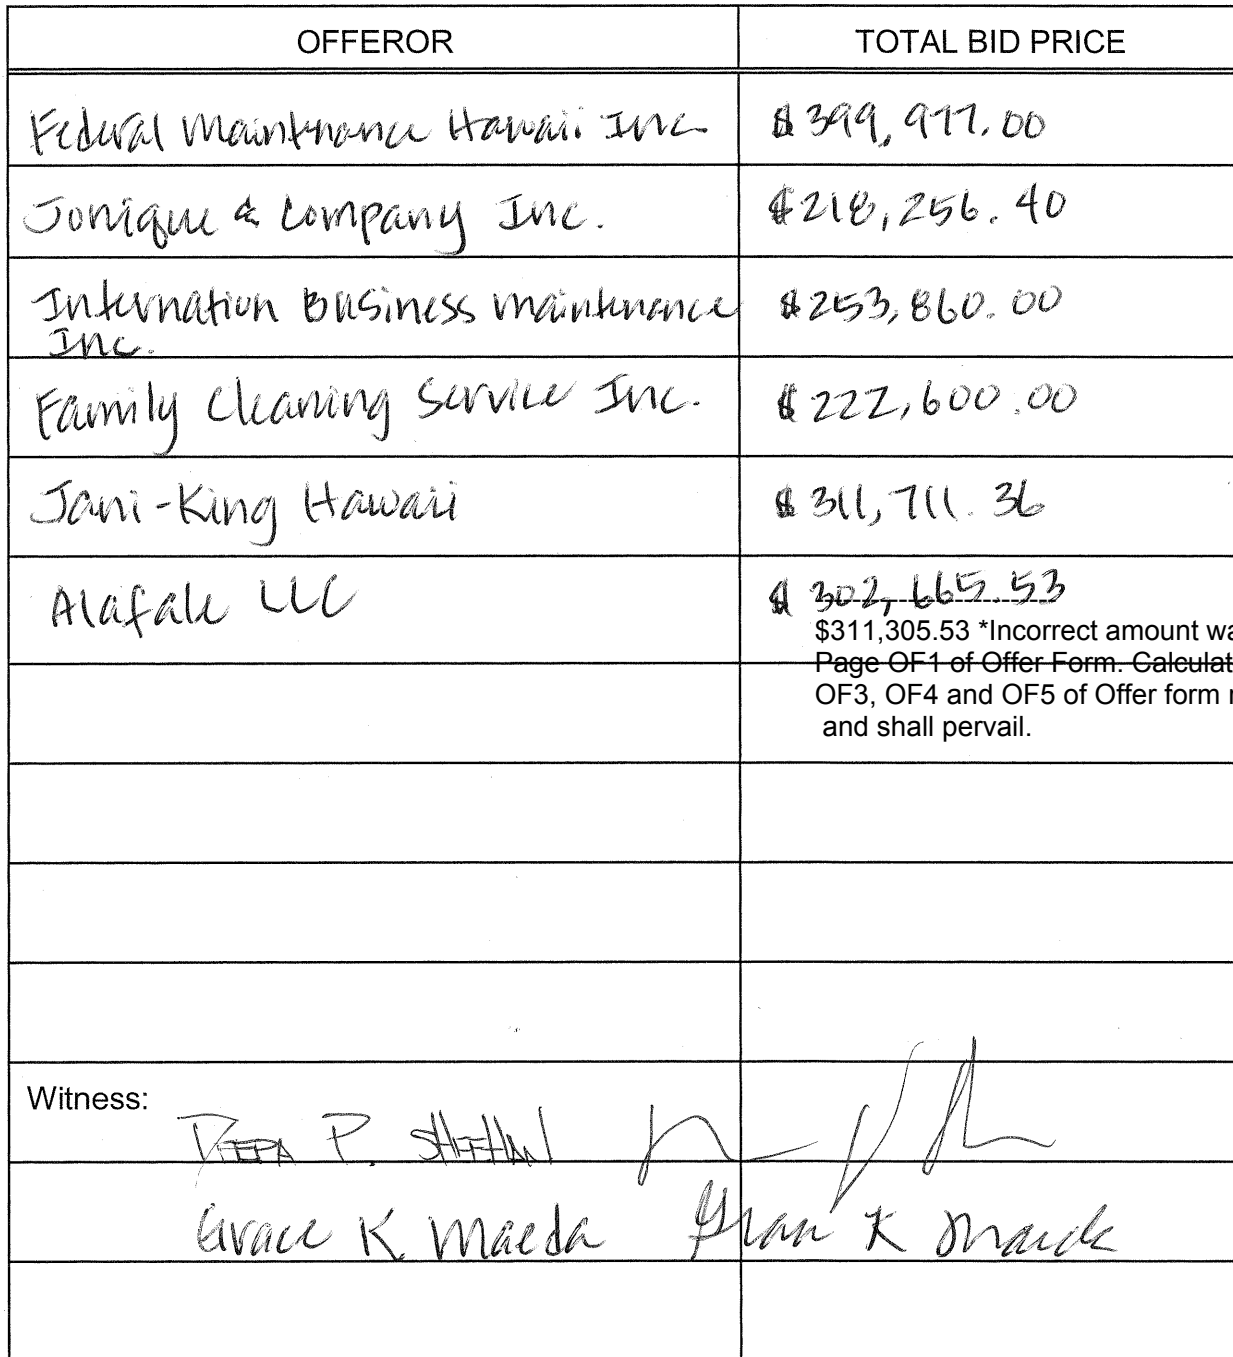 OFFEROR TOTAL BID PRICE
Federal Maintenance Hawaii Inc. $399,977.00
Jonique & Company Inc. $218,256.40
Internation Business Maintenance $253,860.00
Inc.
Family Cleaning Service Inc. $222,600.00
Jani-King Hawaii $311,711.36
Alafale LLC $302,665.53
$311,305.53 *Incorrect amount wa
Page OF1 of Offer Form. Calculat
OF3, OF4 and OF5 of Offer form
and shall pervail.
Witness:
DEEPA P. SHEEHAN
Grace K Maeda Grace K Maeda